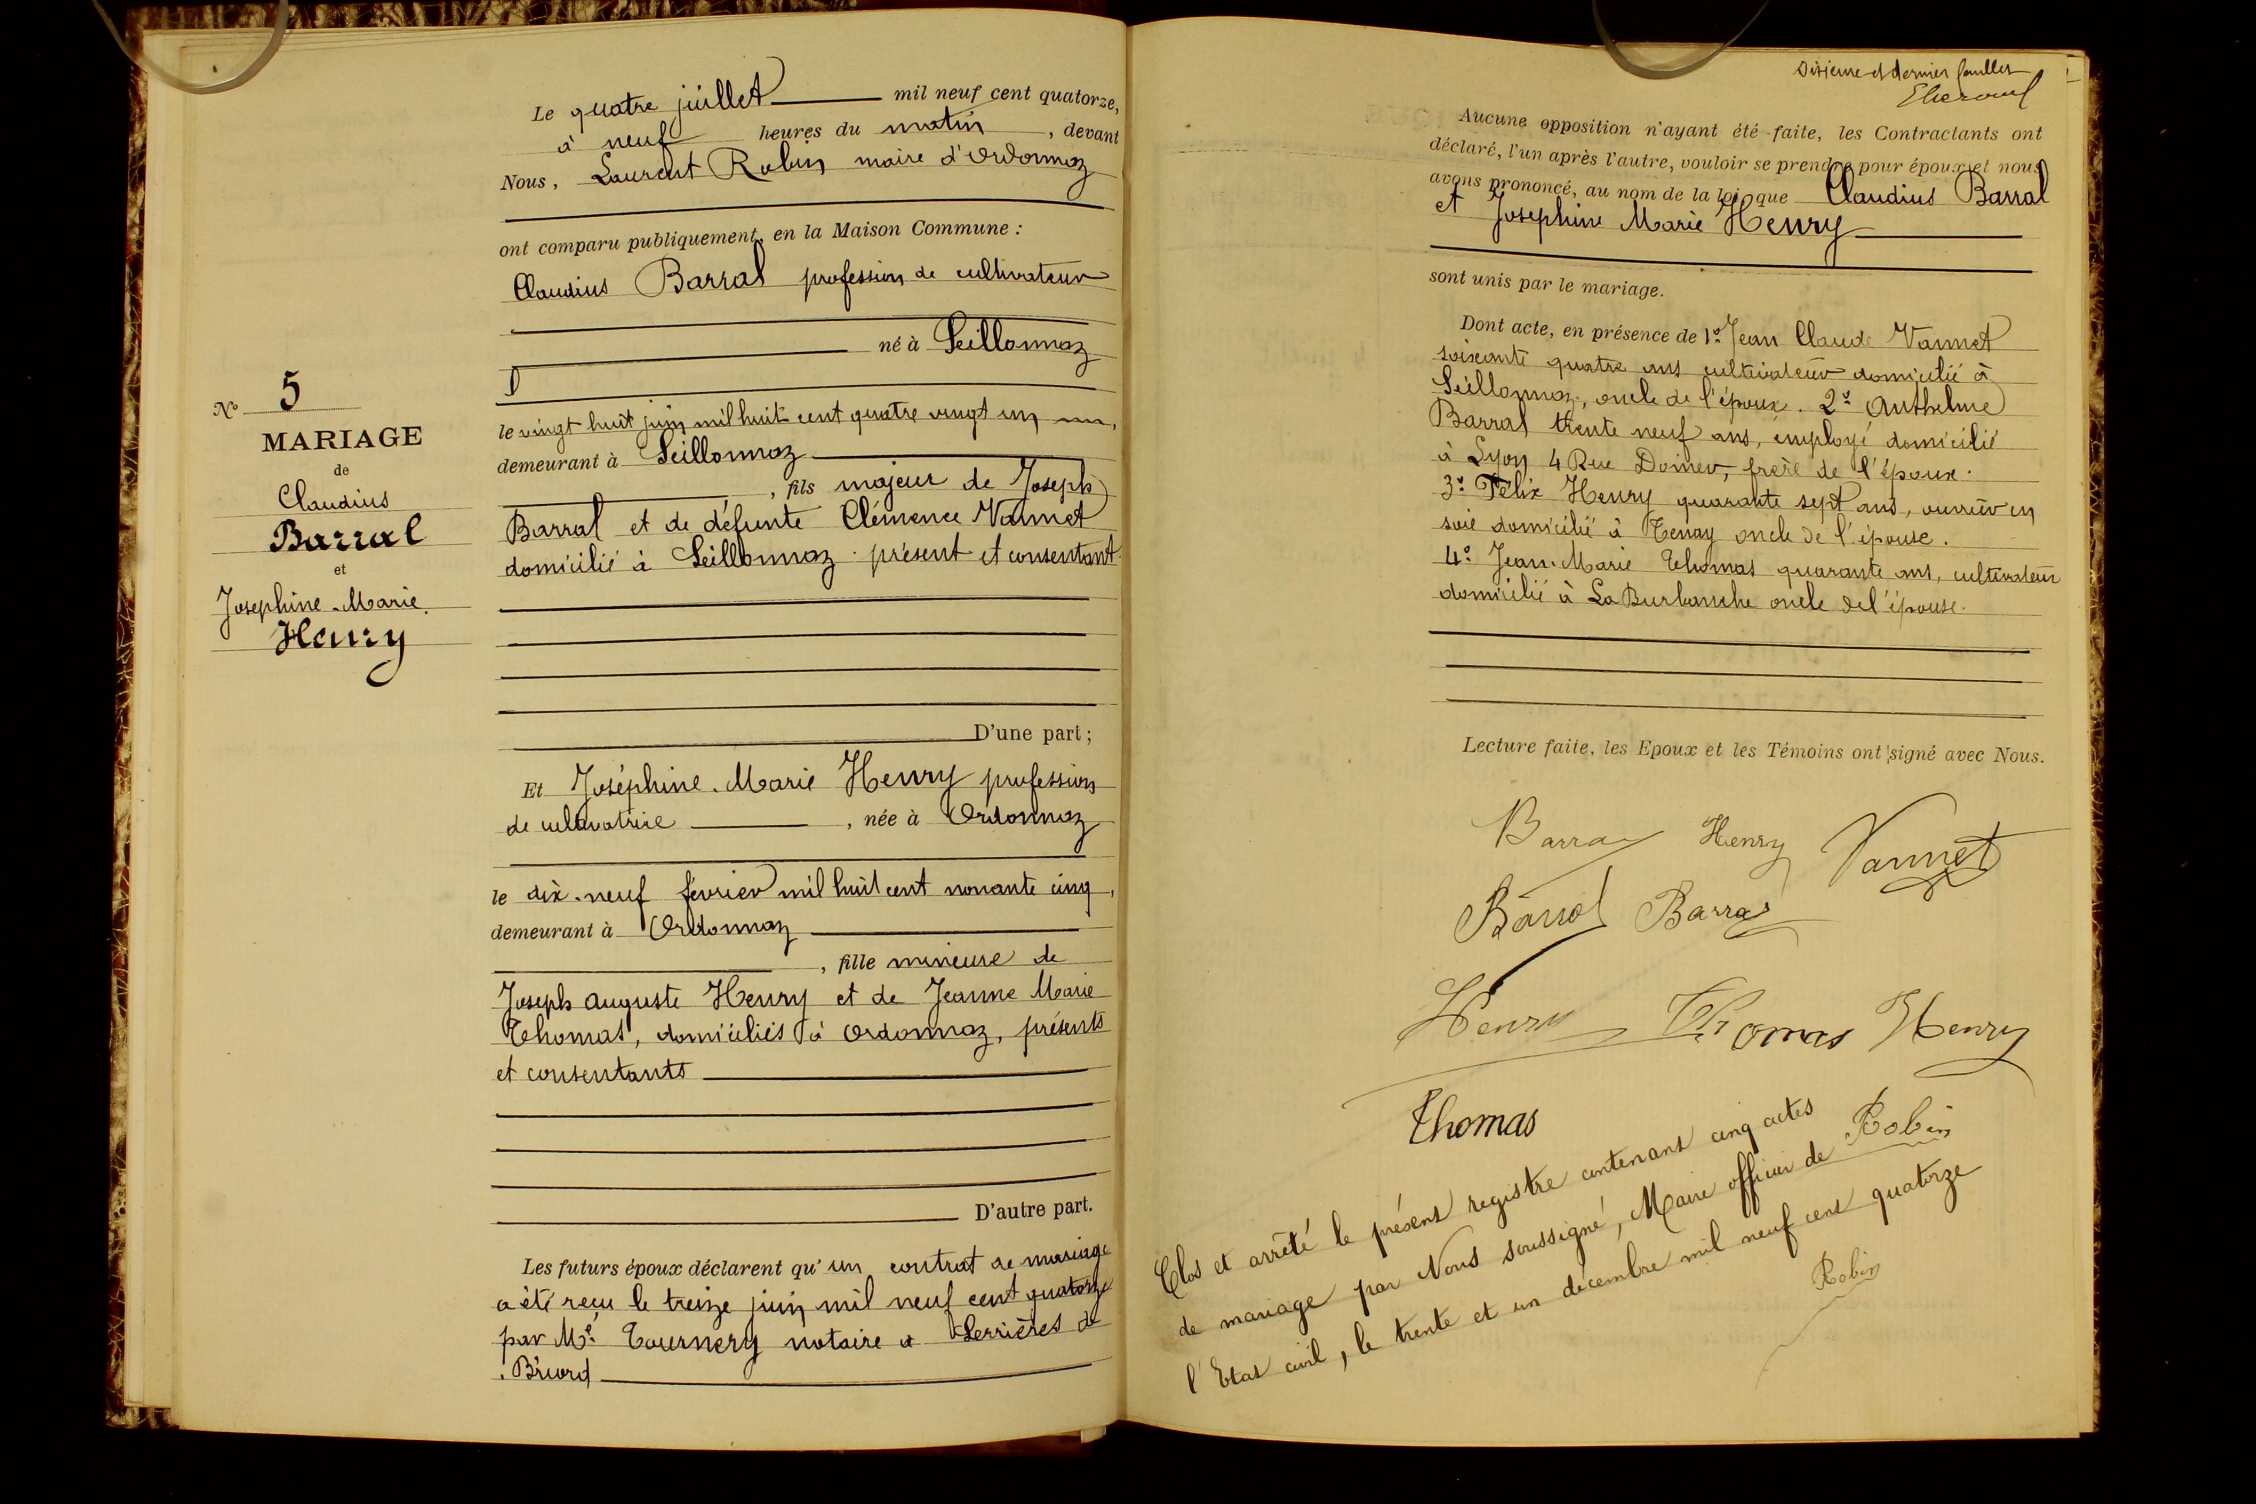 Le quatre juillet mil neuf cent quatorze,
à neuf heures du matin, devant
Nous, Laurent Robin maire d'Ordonnaz
ont comparu publiquement, en la Maison Commune :
Claudius Barral profession de cultivateur
né à Seillonnaz
le vingt huit juin mil huit cent quatre vingt un,
demeurant à Seillonnaz
, fils majeur de Joseph
Barral et de défunte Clémence Vannet
domicilié à Seillonnaz présent et consentant
D'une part ;
Et Joséphine Marie Henry profession
de cultivatrice, née à Ordonnaz
le dix-neuf février mil huit cent nonante cinq,
demeurant à Ordonnaz
, fille mineure de
Joseph Auguste Henry et de Jeanne Marie
Thomas, domiciliés à Ordonnaz, présents
et consentants
D'autre part.
Les futurs époux déclarent qu'un contrat de mariage
a été reçu le treize juin mil neuf cent quatorze
par Me Tournery notaire à Serrières de
Briord
No 5
MARIAGE
de
Claudius
Barral
et
Josephine-Marie
Henry
Dixième et dernier feuillet
Aucune opposition n'ayant été faite, les Contractants ont
déclaré, l'un après l'autre, vouloir se prendre pour époux et nous
avons prononcé, au nom de la loi, que Claudius Barral
et Josephine Marie Henry
sont unis par le mariage.
Dont acte, en présence de 1o Jean Claude Vannet
soixante quatre ans cultivateur domicilié à
Seillonnaz, oncle de l'époux. 2o Anthelme
Barral trente neuf ans, employé domicilié
à Lyon 4 Rue, frère de l'époux.
3o Félix Henry quarante sept ans, ouvrier en
soie domicilié à Tenay oncle de l'épouse.
4o Jean-Marie Thomas quarante ans, cultivateur
domicilié à La Burbanche oncle de l'épouse.
Lecture faite, les Epoux et les Témoins ont signé avec Nous.
Barral Henry Vannet
Barral Barral
Henry Thomas Henry
Thomas
Robin
Clos et arrêté le présent registre contenant cinq actes
de mariage par Nous soussigné, Maire officier de
l'Etat civil, le trente et un décembre mil neuf cent quatorze
Robin